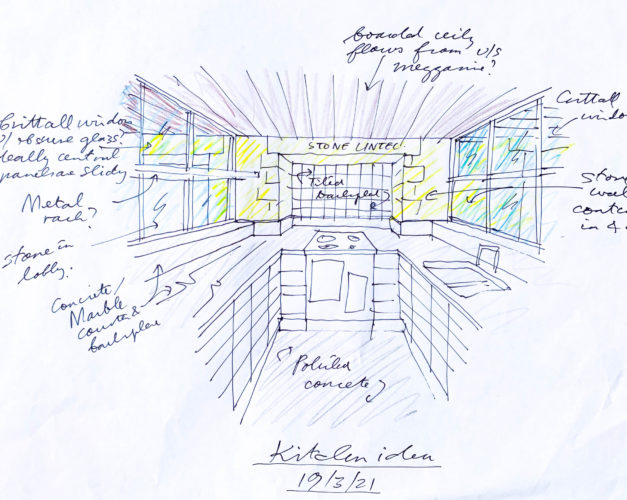 boarded ceily
flows from u/s
mezzanine?
Crittall window
w/ obscure glass?
ideally central
panelrae slidy
Metal
rack?
Stone in
lobby.
Concrete/
Marble
counter &
backsplae
STONE LINTEL
Tiled
backsplash
Crittall
windo
Stone
wall
conti
in 4
Polished
concrete
Kitchen idea
19/3/21